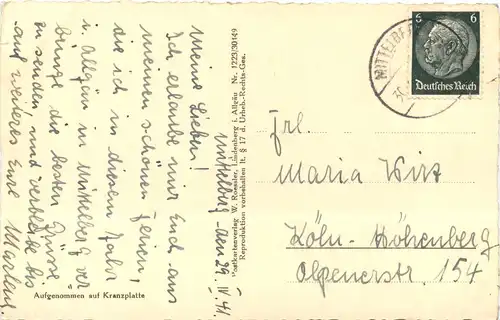 Mittelberg den 29. IV. 41.
Meine Lieben!
Ich erlaube mir Euch aus
meinen schönen Ferien,
die ich in diesem Jahr
i. Allgäu in Mittelberg ver
bringe die besten Grüsse
zu senden, und verbleibe bis
auf weiteres Eure
Aufgenommen auf Kranzplatte
Postkartenverlag W. Roessler, Lindenberg i. Allgäu Nr. 1223/30149
Reproduktion vorbehalten lt. § 17 d. Urheb.-Rechts-Ges.
6 6
Deutsches Reich
MITTELBE
Frl.
Maria Wirt
Köln-Höhenberg
Olpenerstr. 154